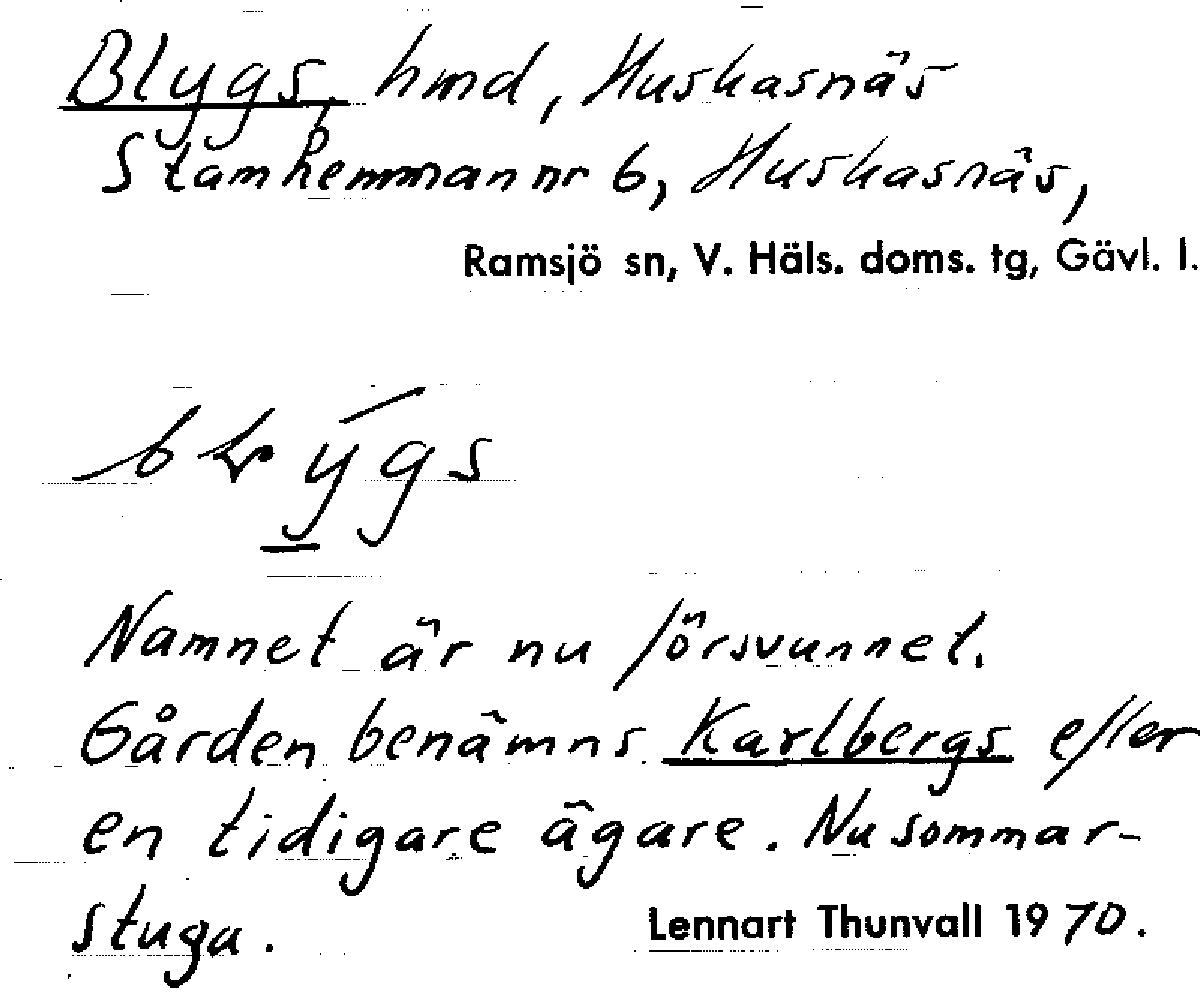 Blygs, hmd, Huskasnäs
Stamhemman nr 6, Huskasnäs,
Ramsjö sn, V. Häls. doms. tg, Gävl. l.
Namnet är nu försvunnet.
Gården benämns Karlbergs efter
en tidigare ägare. Nu sommar-
stuga.
Lennart Thunvall 1970.